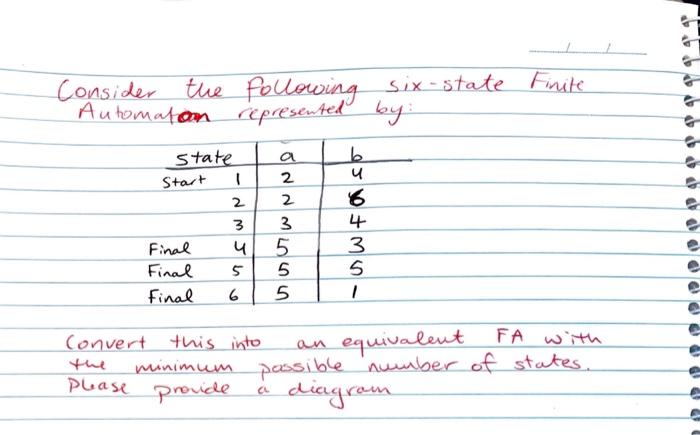 Consider the following six-state Finite
Automaton represented by:
state a b
Start 1 2 4
2 2 6
3 3 4
Final 4 5 3
Final 5 5 5
Final 6 5 1
Convert this into an equivalent FA with
the minimum possible number of states.
Please provide a diagram